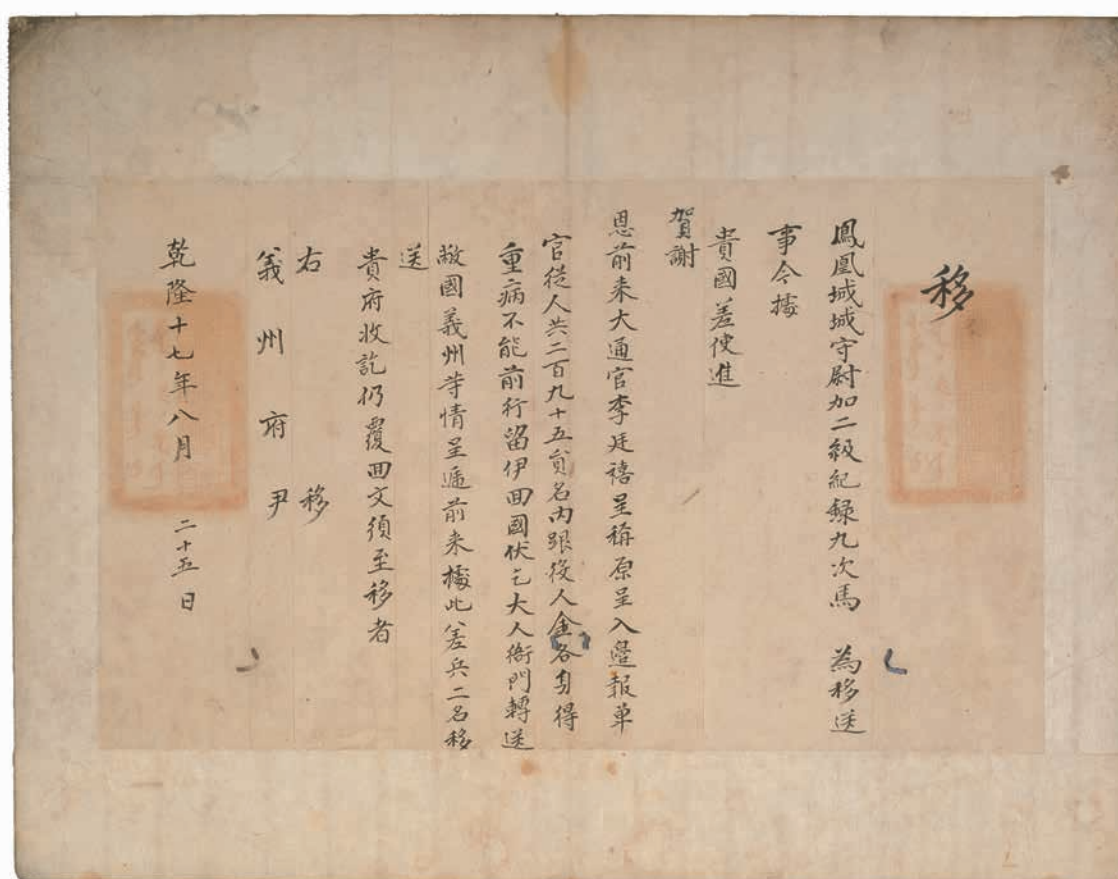 移
鳳凰城城守尉加二級紀錄九次馬 為移送
事今據
貴國差使進
賀謝
恩前来大通官李廷禧呈稱原呈入邊報单
官從人共二百九十五員名内跟役人金各身得
重病不能前行留伊回國伏乞大人衙門轉送
敝國義州等情呈遞前来據此差兵二名移
送
貴府收訖仍覆回文須至移者
右移
義州府尹
乾隆十七年八月二十五日